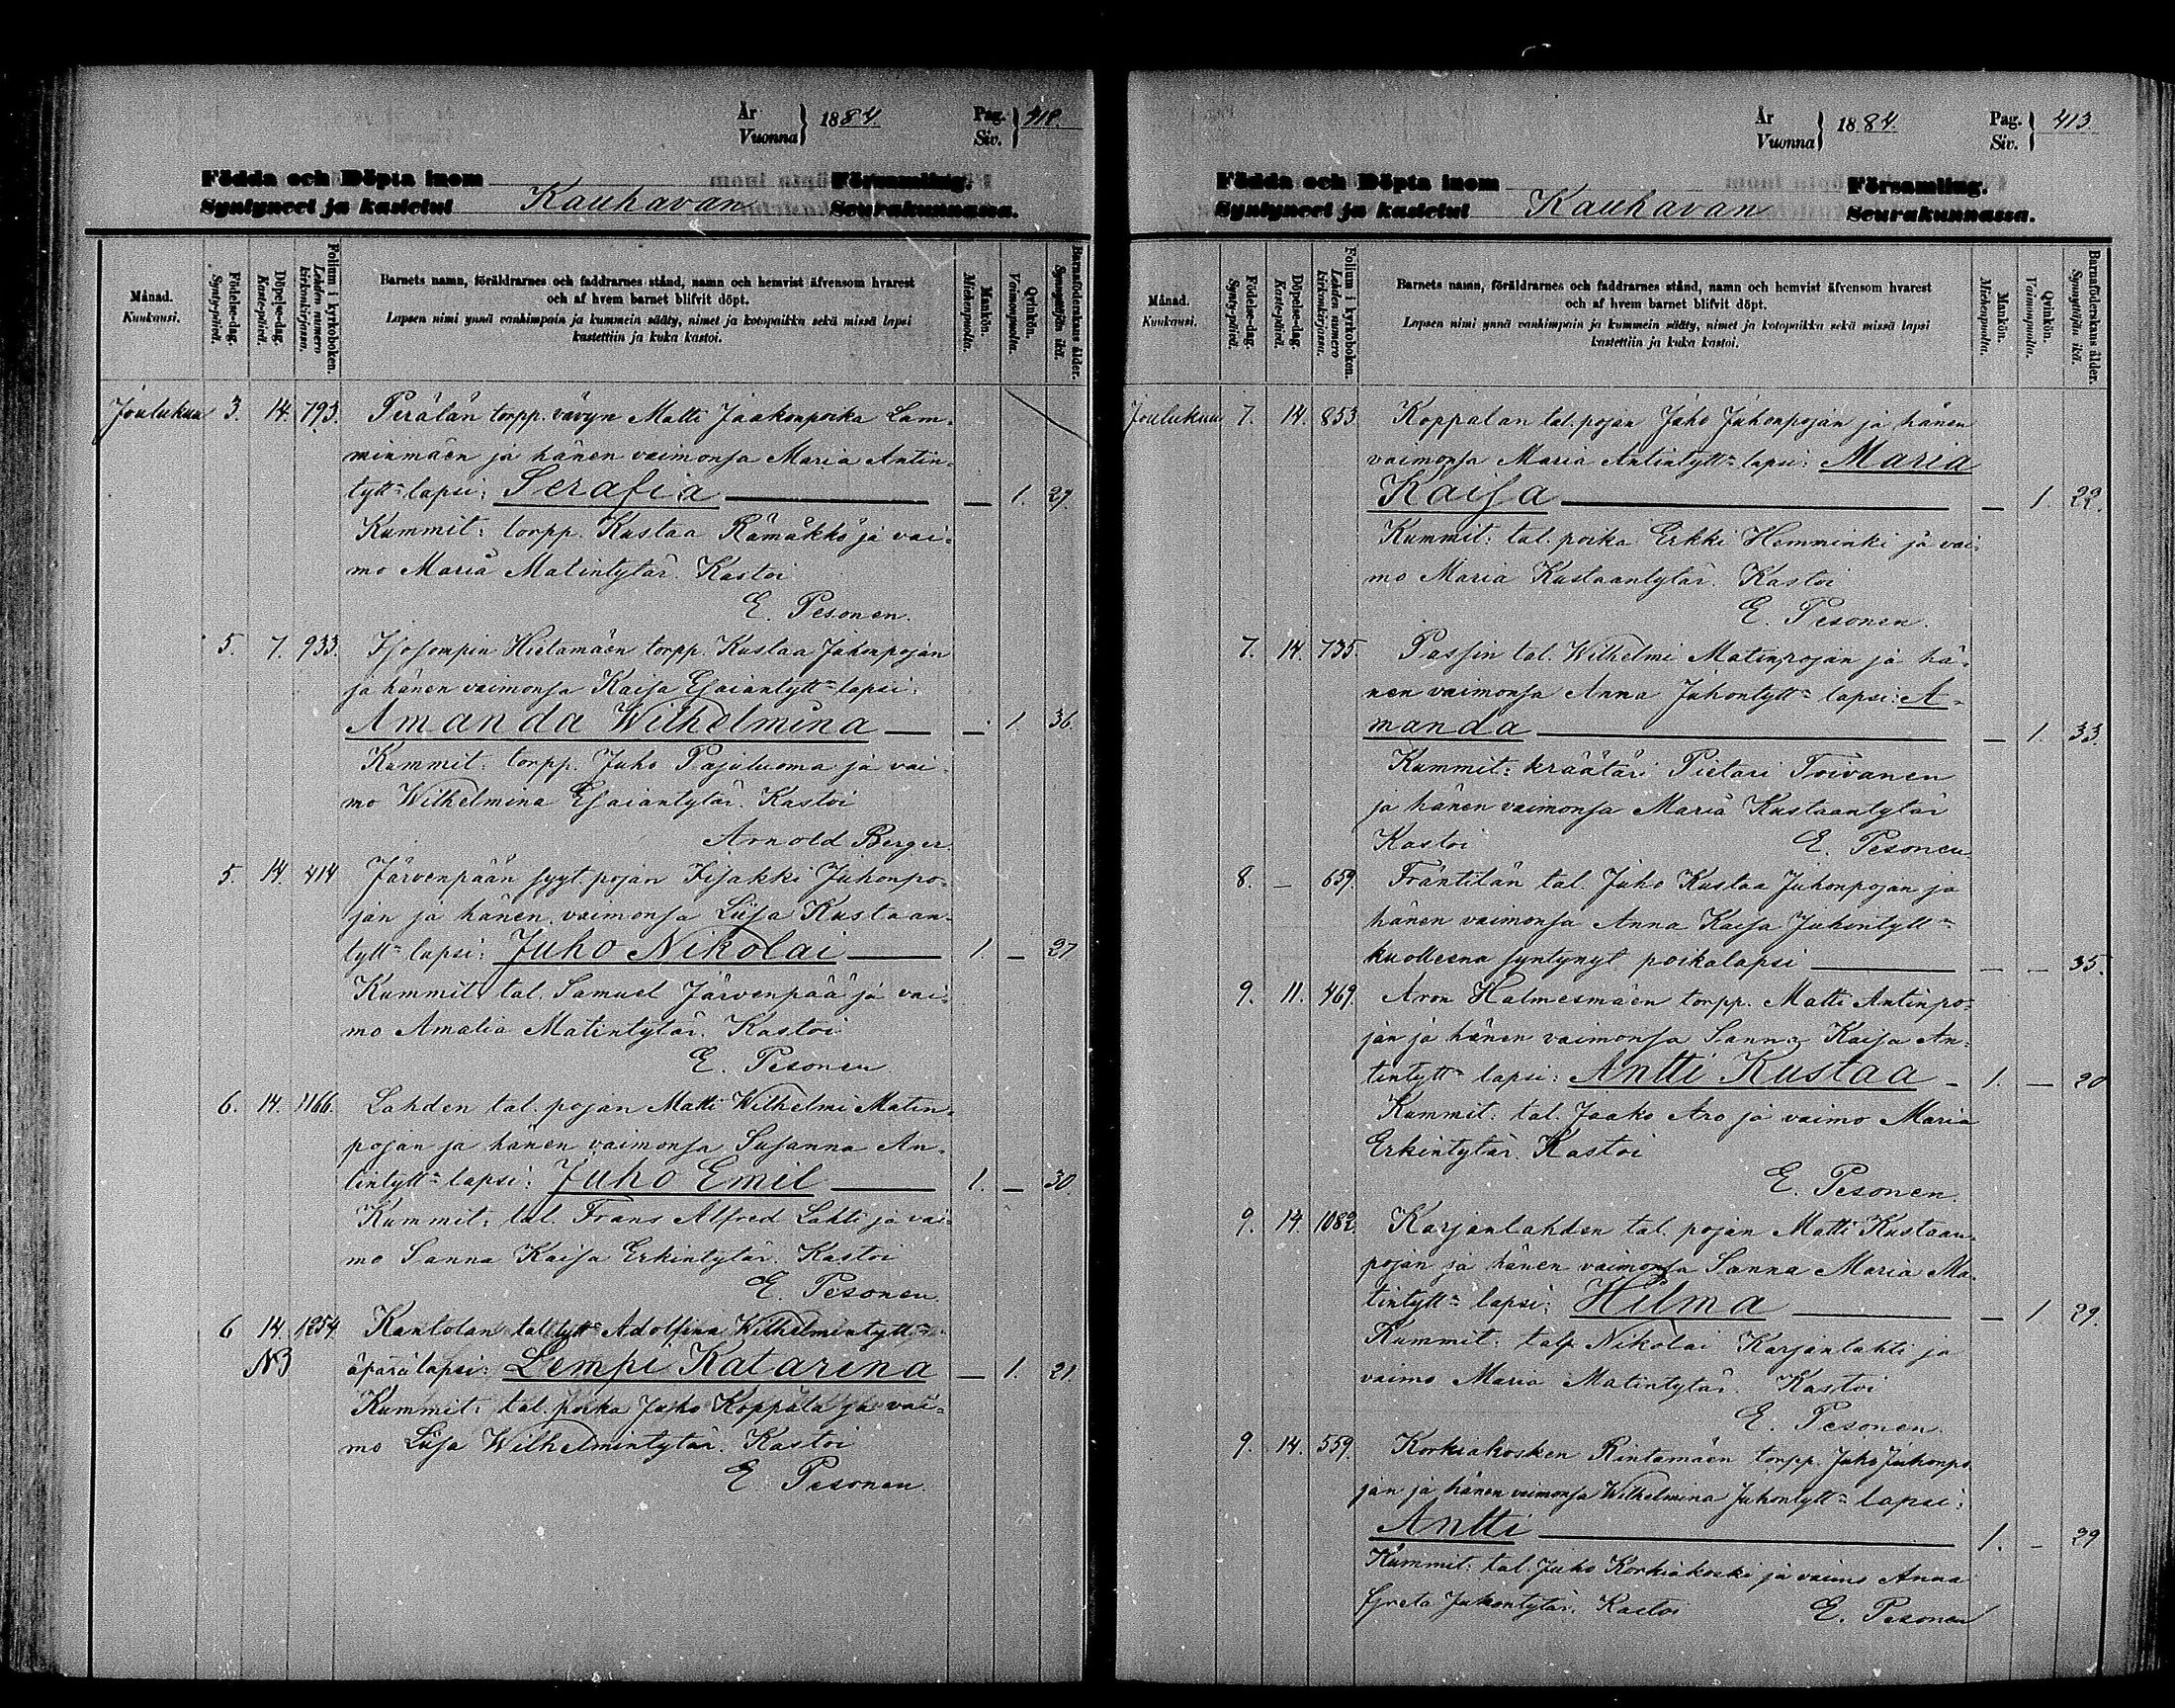 År
Vuonna } 1884. Pag. Siv. } 412.
Födda och Döpta inom Församling.
Syntyneet ja kastetut Kauhavan Seurakunnassa.
Månad. Kuukausi.
Födelse-dag. Synty-päivä.
Döpelse-dag. Kaste-päivä.
Folium i kyrkoboken. Lehden numero kirkonkirjassa.
Barnets namn, föräldrarnes och faddrarnes stånd, namn och hemvist äfvensom hvarest
och af hvem barnet blifvit döpt.
Lapsen nimi ynnä vanhimpain ja kummein sääty, nimet ja kotopaikka sekä missä lapsi
kastettiin ja kuka kastoi.
Mankön. Miehenpuolta.
Qvinkön. Vaimonpuolta.
Barnaföderskans ålder. Synnyttäjän ikä.
Joulukuu 3. 14. 793. Perälän torpp. vävyn Matti Jaakonpoika Lam-
minmäen ja hänen vaimonsa Maria Antin-
tytt= lapsi: Serafia — 1. 27.
Kummit: torpp. Kustaa Rämäkkö ja vai-
mo Maria Matintytär. Kastoi
E. Pesonen.
5. 7. 933. Isosompin Hietamäen torpp. Kustaa Juhonpojan
ja hänen vaimonsa Kaisa Esaiantytt= lapsi:
Amanda Wilhelmina — 1. 36.
Kummit: torpp. Juho Pajuluoma ja vai-
mo Wilhelmina Esaiantytär. Kastoi
Arnold Berger.
5. 14. 414 Järvenpään syyt. pojan Iisakki Juhonpo-
jan ja hänen vaimonsa Liisa Kustaan-
tytt= lapsi: Juho Nikolai 1. — 27
Kummit tal. Samuel Järvenpää ja vai-
mo Amalia Matintytär. Kastoi
E. Pesonen
6. 14. 1166. Lahden tal. pojan Matti Wilhelmi Matin-
pojan ja hänen vaimonsa Susanna An-
tintytt= lapsi: Juho Emil 1. — 30.
Kummit: tal. Frans Alfred Lahti ja vai-
mo Sanna Kaisa Erkintytär. Kastoi
E. Pesonen.
6 14. 1254. Kantolan tal tytt= Adolfina Wilhelmintytt=
N3 äpärälapsi: Lempi Katarina — 1. 21.
Kummit: tal. poika Juho Koppala ja vai-
mo Liisa Wilhelmintytär. Kastoi
E. Pesonen.
År
Vuonna } 1884. Pag. Siv. } 413.
Födda och Döpta inom Församling.
Syntyneet ja kastetut Kauhavan Seurakunnassa.
Månad. Kuukausi.
Födelse-dag. Synty-päivä.
Döpelse-dag. Kaste-päivä.
Folium i kyrkoboken. Lehden numero kirkonkirjassa.
Barnets namn, föräldrarnes och faddrarnes stånd, namn och hemvist äfvensom hvarest
och af hvem barnet blifvit döpt.
Lapsen nimi ynnä vanhimpain ja kummein sääty, nimet ja kotopaikka sekä missä lapsi
kastettiin ja kuka kastoi.
Mankön. Miehenpuolta.
Qvinkön. Vaimonpuolta.
Barnaföderskans ålder. Synnyttäjän ikä.
Joulukuu 7. 14. 853. Koppalan tal. pojan Juho Juhonpojan ja hänen
vaimonsa Maria Antintytt= lapsi: Maria
Kaisa — 1. 22.
Kummit: tal. poika Erkki Hemminki ja vai-
mo Maria Kustaantytär. Kastoi
E. Pesonen.
7. 14. 735. Passin tal. Wilhelmi Matinpojan ja hä-
nen vaimonsa Anna Juhontytt= lapsi: A-
manda — 1. 33.
Kummit: kräätäri Pietari Toivanen
ja hänen vaimonsa Maria Kustaantytär
Kastoi E. Pesonen.
8. — 659. Fräntilän tal. Juho Kustaa Juhonpojan ja
hänen vaimonsa Anna Kaisa Juhontytt=
kuolleena syntynyt poikalapsi — — 35.
9. 11. 469. Aron Halmesmäen torpp. Matti Antinpo-
jan ja hänen vaimonsa Sanna Kaisa An-
tintytt= lapsi: Antti Kustaa 1. — 20
Kummit: tal. Jaako Aro ja vaimo Maria
Erkintytär. Kastoi
E. Pesonen.
9. 14. 1082. Karjanlahden tal. pojan Matti Kustaan-
pojan ja hänen vaimonsa Sanna Maria Ma-
tintytt= lapsi: Hilma — 1 29.
Kummit: talp Nikolai Karjanlahti ja
vaimo Maria Matintytär. Kastoi
E. Pesonen.
9. 14. 559. Korkiakosken Rintamäen torpp. Juho Juhonpo-
jan ja hänen vaimonsa Wilhelmina Juhontytt= lapsi:
Antti 1. — 29
Kummit: tal. Juho Korkiakoski ja vaimo Anna
Greta Juhontytär. Kastoi E. Pesonen